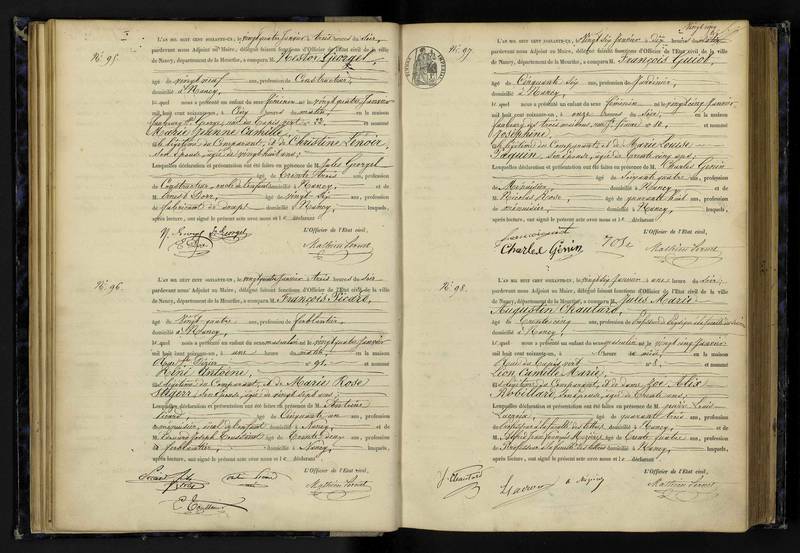 No. 95.
L'AN MIL HUIT CENT SOIXANTE-UN, le vingt quatre Janvier trois heures du soir,
pardevant nous Adjoint au Maire, délégué faisant fonctions d'Officier de l'Etat civil de la ville
de Nancy, département de la Meurthe, a comparu M. Nestor Georgel,
âgé de vingt neuf ans, profession de Constructeur,
domicilié à Nancy,
lequel nous a présenté un enfant du sexe féminin né le vingt quatre Janvier
mil huit cent soixante-un, à Cinq heures du matin, en la maison
faubourg St. Georges et nommé
Marie Jeanne Camille
fille légitime du Comparant, et de Christine Lenoir,
son épouse, âgée de vingt huit ans;
Lesquelles déclaration et présentation ont été faites en présence de M. Jules Georgel
âgé de trente trois ans, profession
de Constructeur, oncle de l'enfant domicilié à Nancy, et de
M. Ernest âgé de vingt-six ans, profession
de fabricant de domicilié à Nancy, lesquels,
après lecture, ont signé le présent acte avec nous et le déclarant
L'Officier de l'Etat civil,
N. Georgel J. Georgel
No. 96.
L'AN MIL HUIT CENT SOIXANTE-UN, le vingt quatre Janvier trois heures du soir
pardevant nous Adjoint au Maire, délégué faisant fonctions d'Officier de l'Etat civil de la ville
de Nancy, département de la Meurthe, a comparu M. François Picard,
âgé de vingt quatre ans, profession de ferblantier,
domicilié à Nancy,
lequel nous a présenté un enfant du sexe masculin né le vingt quatre Janvier
mil huit cent soixante-un, à une heure du matin, en la maison
Rue St. Dizier no 91 et nommé
Réné Antoine
fils légitime du Comparant, et de Marie Rose
son épouse, âgée de vingt sept ans;
Lesquelles déclaration et présentation ont été faites en présence de M. Antoine
Picard, âgé de Cinquante un ans, profession
de menuisier, aïeul de l'enfant domicilié à Nancy, et de
M. Edouard Joseph âgé de trente deux ans, profession
de ferblantier, domicilié à Nancy, lesquels,
après lecture, ont signé le présent acte avec nous et le déclarant
L'Officier de l'Etat civil,
No. 97.
L'AN MIL HUIT CENT SOIXANTE-UN, le vingt six Janvier dix heures du matin
pardevant nous Adjoint au Maire, délégué faisant fonctions d'Officier de l'Etat civil de la ville
de Nancy, département de la Meurthe, a comparu M. François Guiot,
âgé de Cinquante six ans, profession de Jardinier,
domicilié à Nancy,
lequel nous a présenté un enfant du sexe féminin né le vingt cinq Janvier
mil huit cent soixante-un, à onze heures du soir, en la maison
faubourg des trois maisons, et nommé
Joséphine
fille légitime du Comparant, et de Marie Louise
Paquin, son épouse, âgée de trente cinq ans;
Lesquelles déclaration et présentation ont été faites en présence de M. Charles Génin
âgé de soixante quatre ans, profession
de Menuisier, domicilié à Nancy et de
M. Nicolas Rose, âgé de quarante huit ans, profession
de menuisier, domicilié à Nancy, lesquels,
après lecture, ont signé le présent acte avec nous et le déclarant
L'Officier de l'Etat civil,
Charles Génin rose
No. 98.
L'AN MIL HUIT CENT SOIXANTE-UN, le vingt six Janvier une heure du soir,
pardevant nous Adjoint au Maire, délégué faisant fonctions d'Officier de l'Etat civil de la ville
de Nancy, département de la Meurthe, a comparu M. Jules Marie
Augustin Chautard,
âgé de trente cinq ans, profession de Professeur de Physique
domicilié à Nancy,
lequel nous a présenté un enfant du sexe masculin né le vingt cinq Janvier
mil huit cent soixante-un, à heure de midi, en la maison
et nommé
Léon Camille Marie,
fils légitime du Comparant, et de dame Zoé Alix
Robillard, son épouse, âgée de trente ans;
Lesquelles déclaration et présentation ont été faites en présence de M. Louis
Lacroix âgé de quarante trois ans, profession
de Professeur à la faculté des lettres, domicilié à Nancy, et de
M. Alfred Jean François Mézières âgé de trente quatre ans, profession
de Professeur à la faculté des lettres domicilié à Nancy, lesquels,
après lecture, ont signé le présent acte avec nous et le déclarant
L'Officier de l'Etat civil,
J. Chautard
Lacroix A Mézières